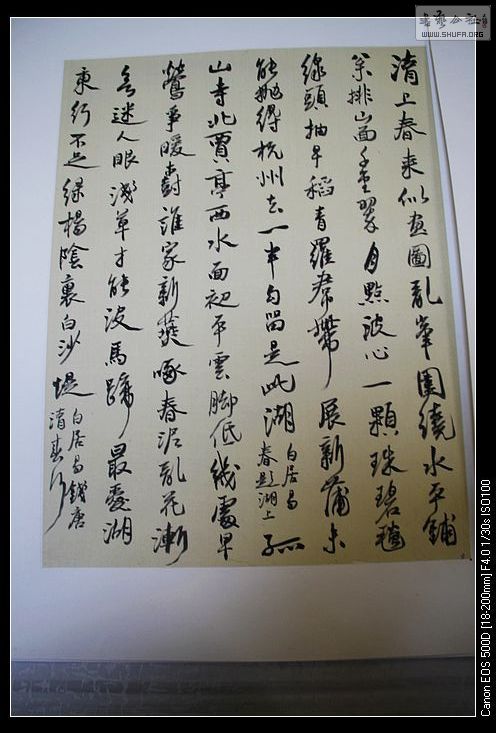 書藝公社
WWW.SHUFA.ORG
湖上春来似画圖亂峯圍繞水平鋪
松排山面千重翠月點波心一顆珠碧毯
線頭抽早稻青羅裙帶展新蒲未
能抛得杭州去一半勾留是此湖白居易春題湖上孤
山寺北賈亭西水面初平雲脚低幾處早
鶯爭暖樹誰家新燕啄春泥亂花漸
欲迷人眼淺草才能没馬蹄最愛湖
東行不足緑楊陰裏白沙堤白居易錢唐湖春行
Canon EOS 500D [18-200mm] F4.0 1/30s ISO100